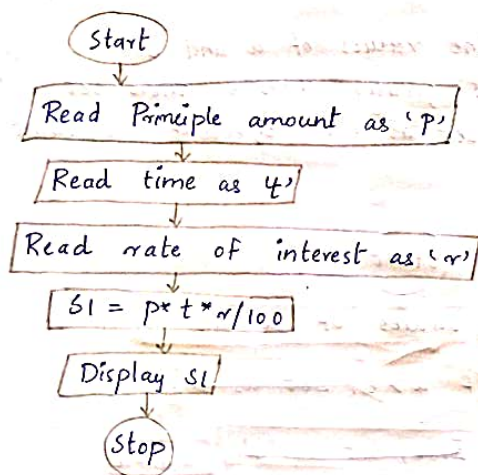 Start
Read Principle amount as 'p'
Read time as 't'
Read rate of interest as 'r'
SI = p* t * r/100
Display SI
Stop